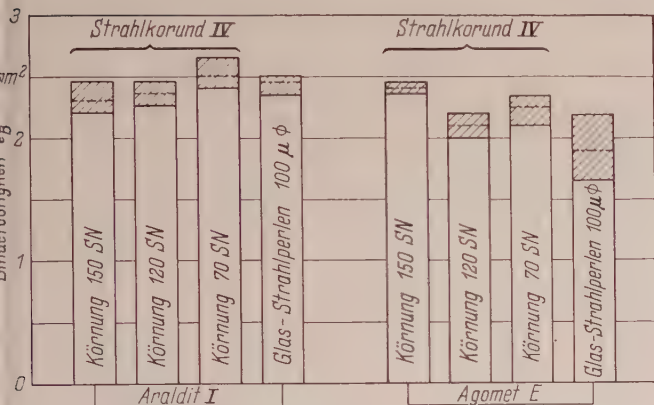 3
Strahlkorund IV
Strahlkorund IV
mm²
2
1
0
Körnung 150 SN
Körnung 120 SN
Körnung 70 SN
Glas-Strahlperlen 100 µ ϕ
Körnung 150 SN
Körnung 120 SN
Körnung 70 SN
Glas-Strahlperlen 100µϕ
Araldit I
Agomet E